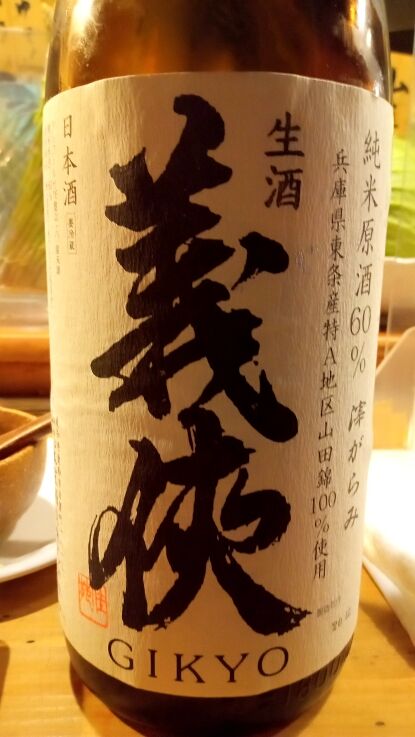 純米原酒60% 滓がらみ
兵庫県東条産特A地区山田錦100%使用
生酒
義侠
日本酒
(要冷蔵)
GIKYO